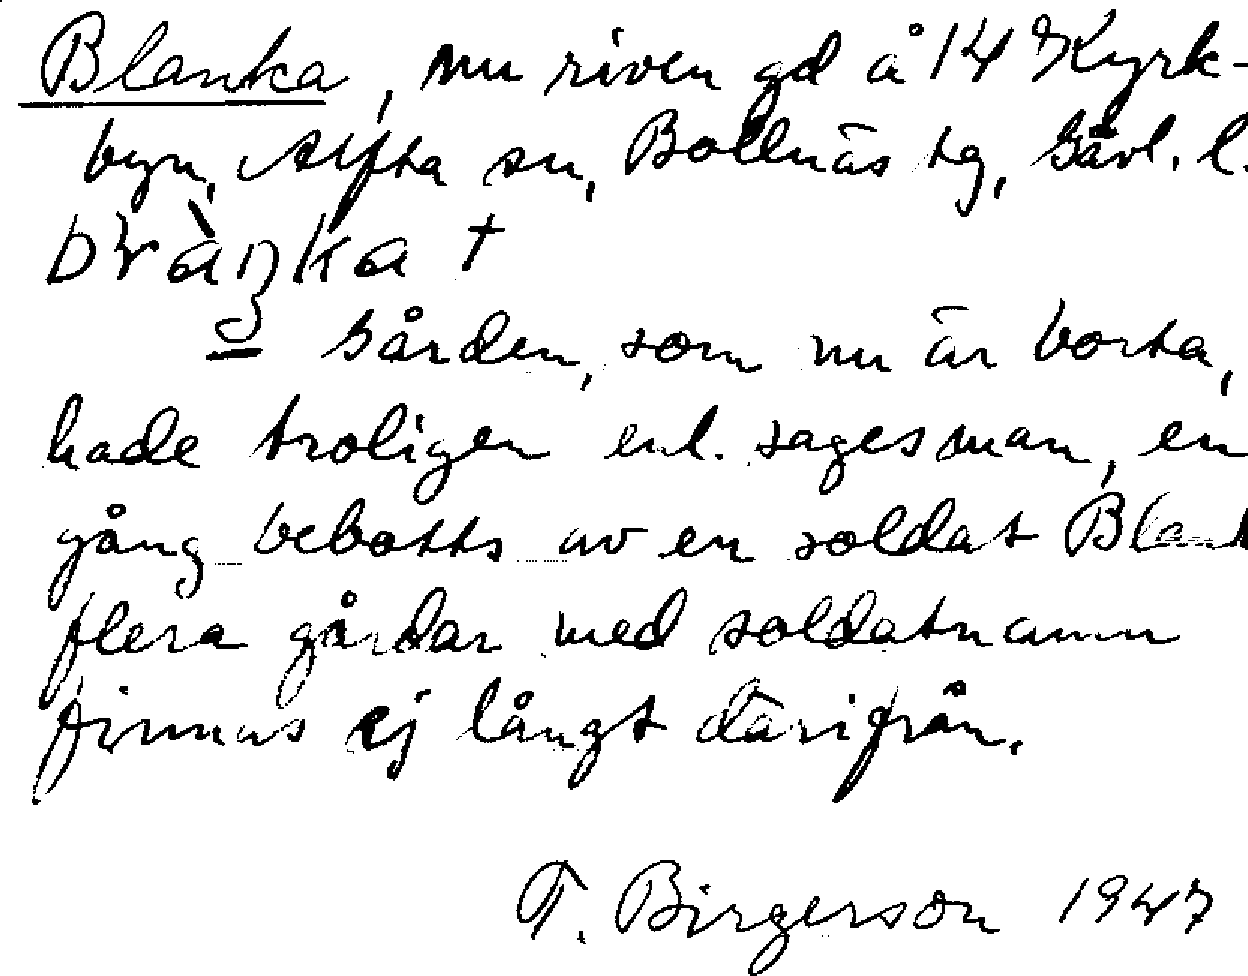 Blanka, nu riven gd å 14 Kyrk-
byn, Alfta sn, Bollnäs tg, Gävl. l.
= Gården, som nu är borta,
hade troligen enl. sagesman, en
gång bebotts av en soldat Blank
flera gårdar med soldatnamn
finnas ej långt därifrån.
T. Birgerson 1947